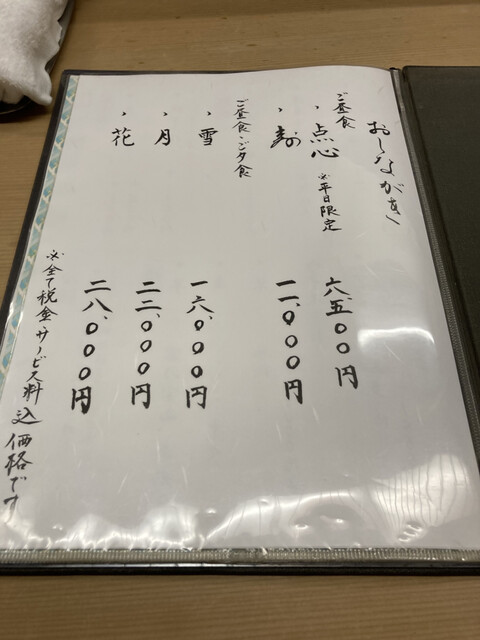 おしながき
ご昼食
、点心 ※平日限定 六、五〇〇円
、寿 一一、〇〇〇円
ご昼食・ご夕食
、雪 一六、〇〇〇円
、月 二二、〇〇〇円
、花 二八、〇〇〇円
※全て税金・サービス料込価格です